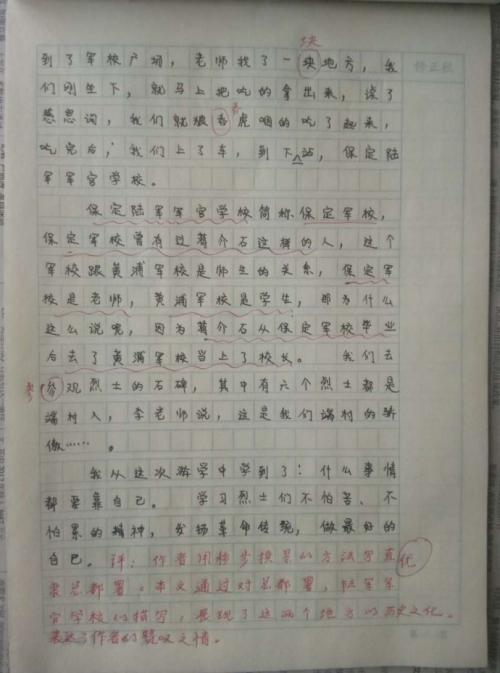 块
到了军校广场，老师找了一块地方，我
们刚坐下，就马上把吃的拿出来，读了
感恩词，我们就狼吞虎咽的吃了起来，
吃完后，我们上了车，到下站，保定陆
军军官学校。
保定陆军军官学校简称保定军校，
保定军校曾有过蒋介石这样的人，这个
军校跟黄浦军校是师生的关系，保定军
校是老师，黄浦军校是学生，那为什么
这么说呢，因为蒋介石从保定军校毕业
后去了黄浦军校当上了校长。 我们去
参
参观烈士的石碑，其中有六个烈士都是
端村人，李老师说，这是我们端村的骄
傲……。
我从这次游学中学到了：什么事情
都要靠自己。 学习烈士们不怕苦、不
怕累的精神，发扬革命传统，做最好的
自己。评：作者用移步换景的方法写直
隶总都署。本文通过对总都署，陆军军
官学校的描写，展现了这两个地方的历史文化。
表达了作者的赞叹之情。
化
修正栏